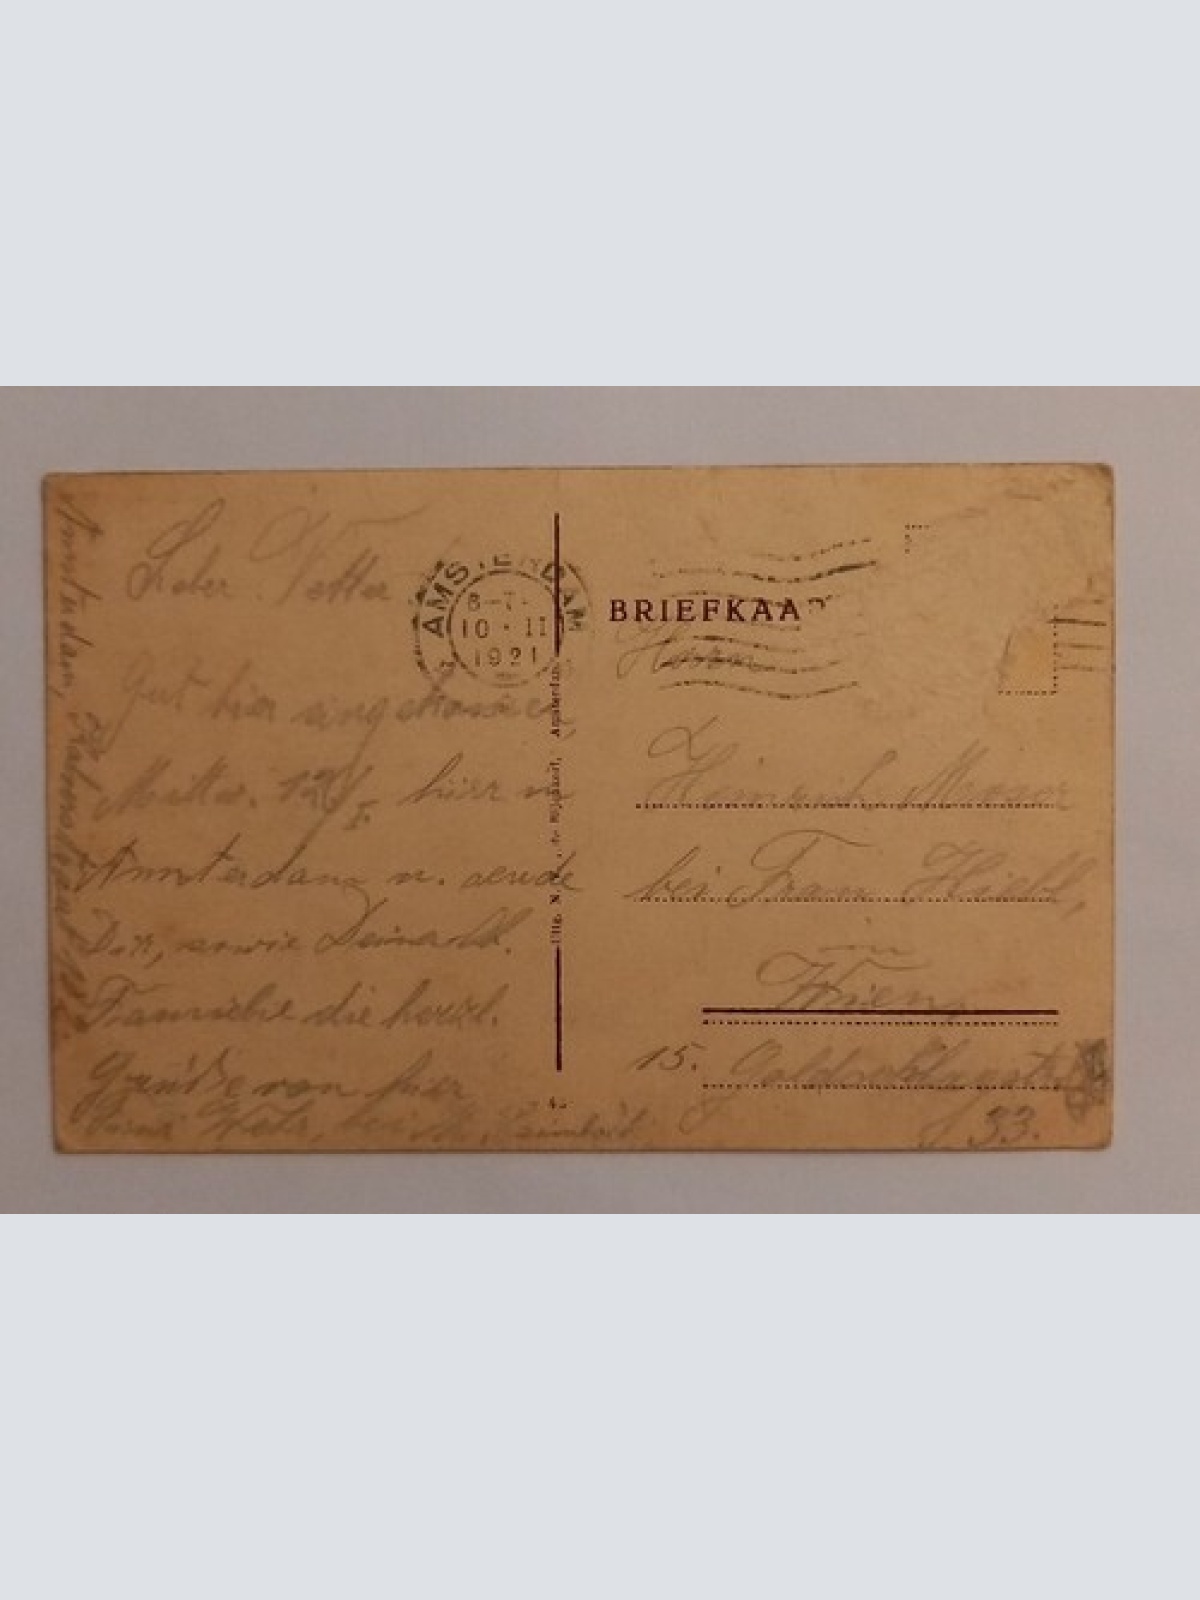 Lieber Vetter
Gut hier angekommen
Mittw. 12/I. hier in
Amsterdam u. sende
Dir, sowie Deiner lb.
Familie die herzl.
Grüße von hier
bei
Amsterdam,
AMSTERDAM
8-7-
10·II
1921
Uitg. N. Amsterdam
45
BRIEFKAAR
Herrn
Heinrich Moeser
bei Frau Hiebl,
in
Wien,
15. Goldschlagstr
33.